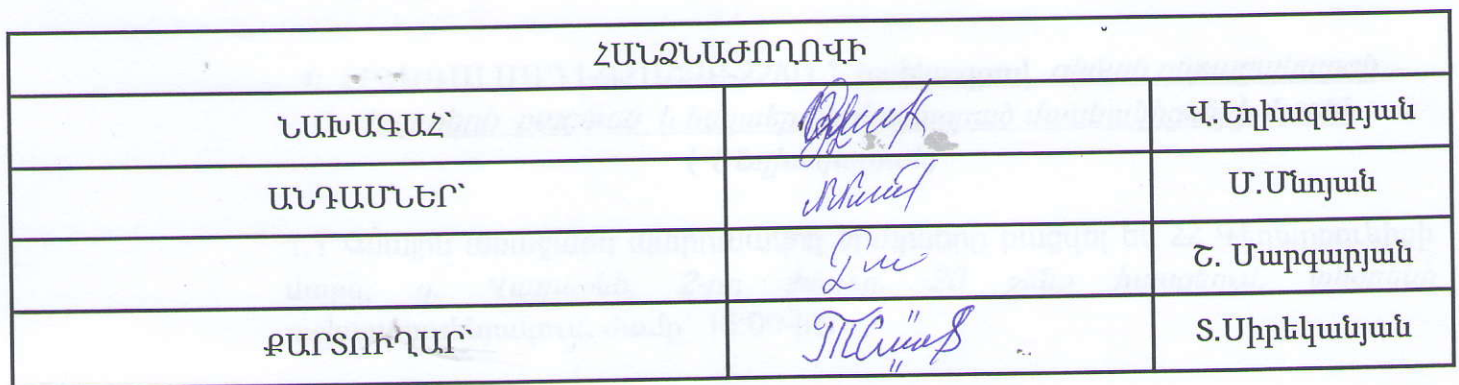 ՀԱՆՁՆԱԺՈՂՈՎԻ
ՆԱԽԱԳԱՀ՝ Վ.Եղիազարյան
ԱՆԴԱՄՆԵՐ՝ Մ.Մնոյան
Շ. Մարգարյան
ՔԱՐՏՈՒՂԱՐ՝ Տ.Սիրեկանյան